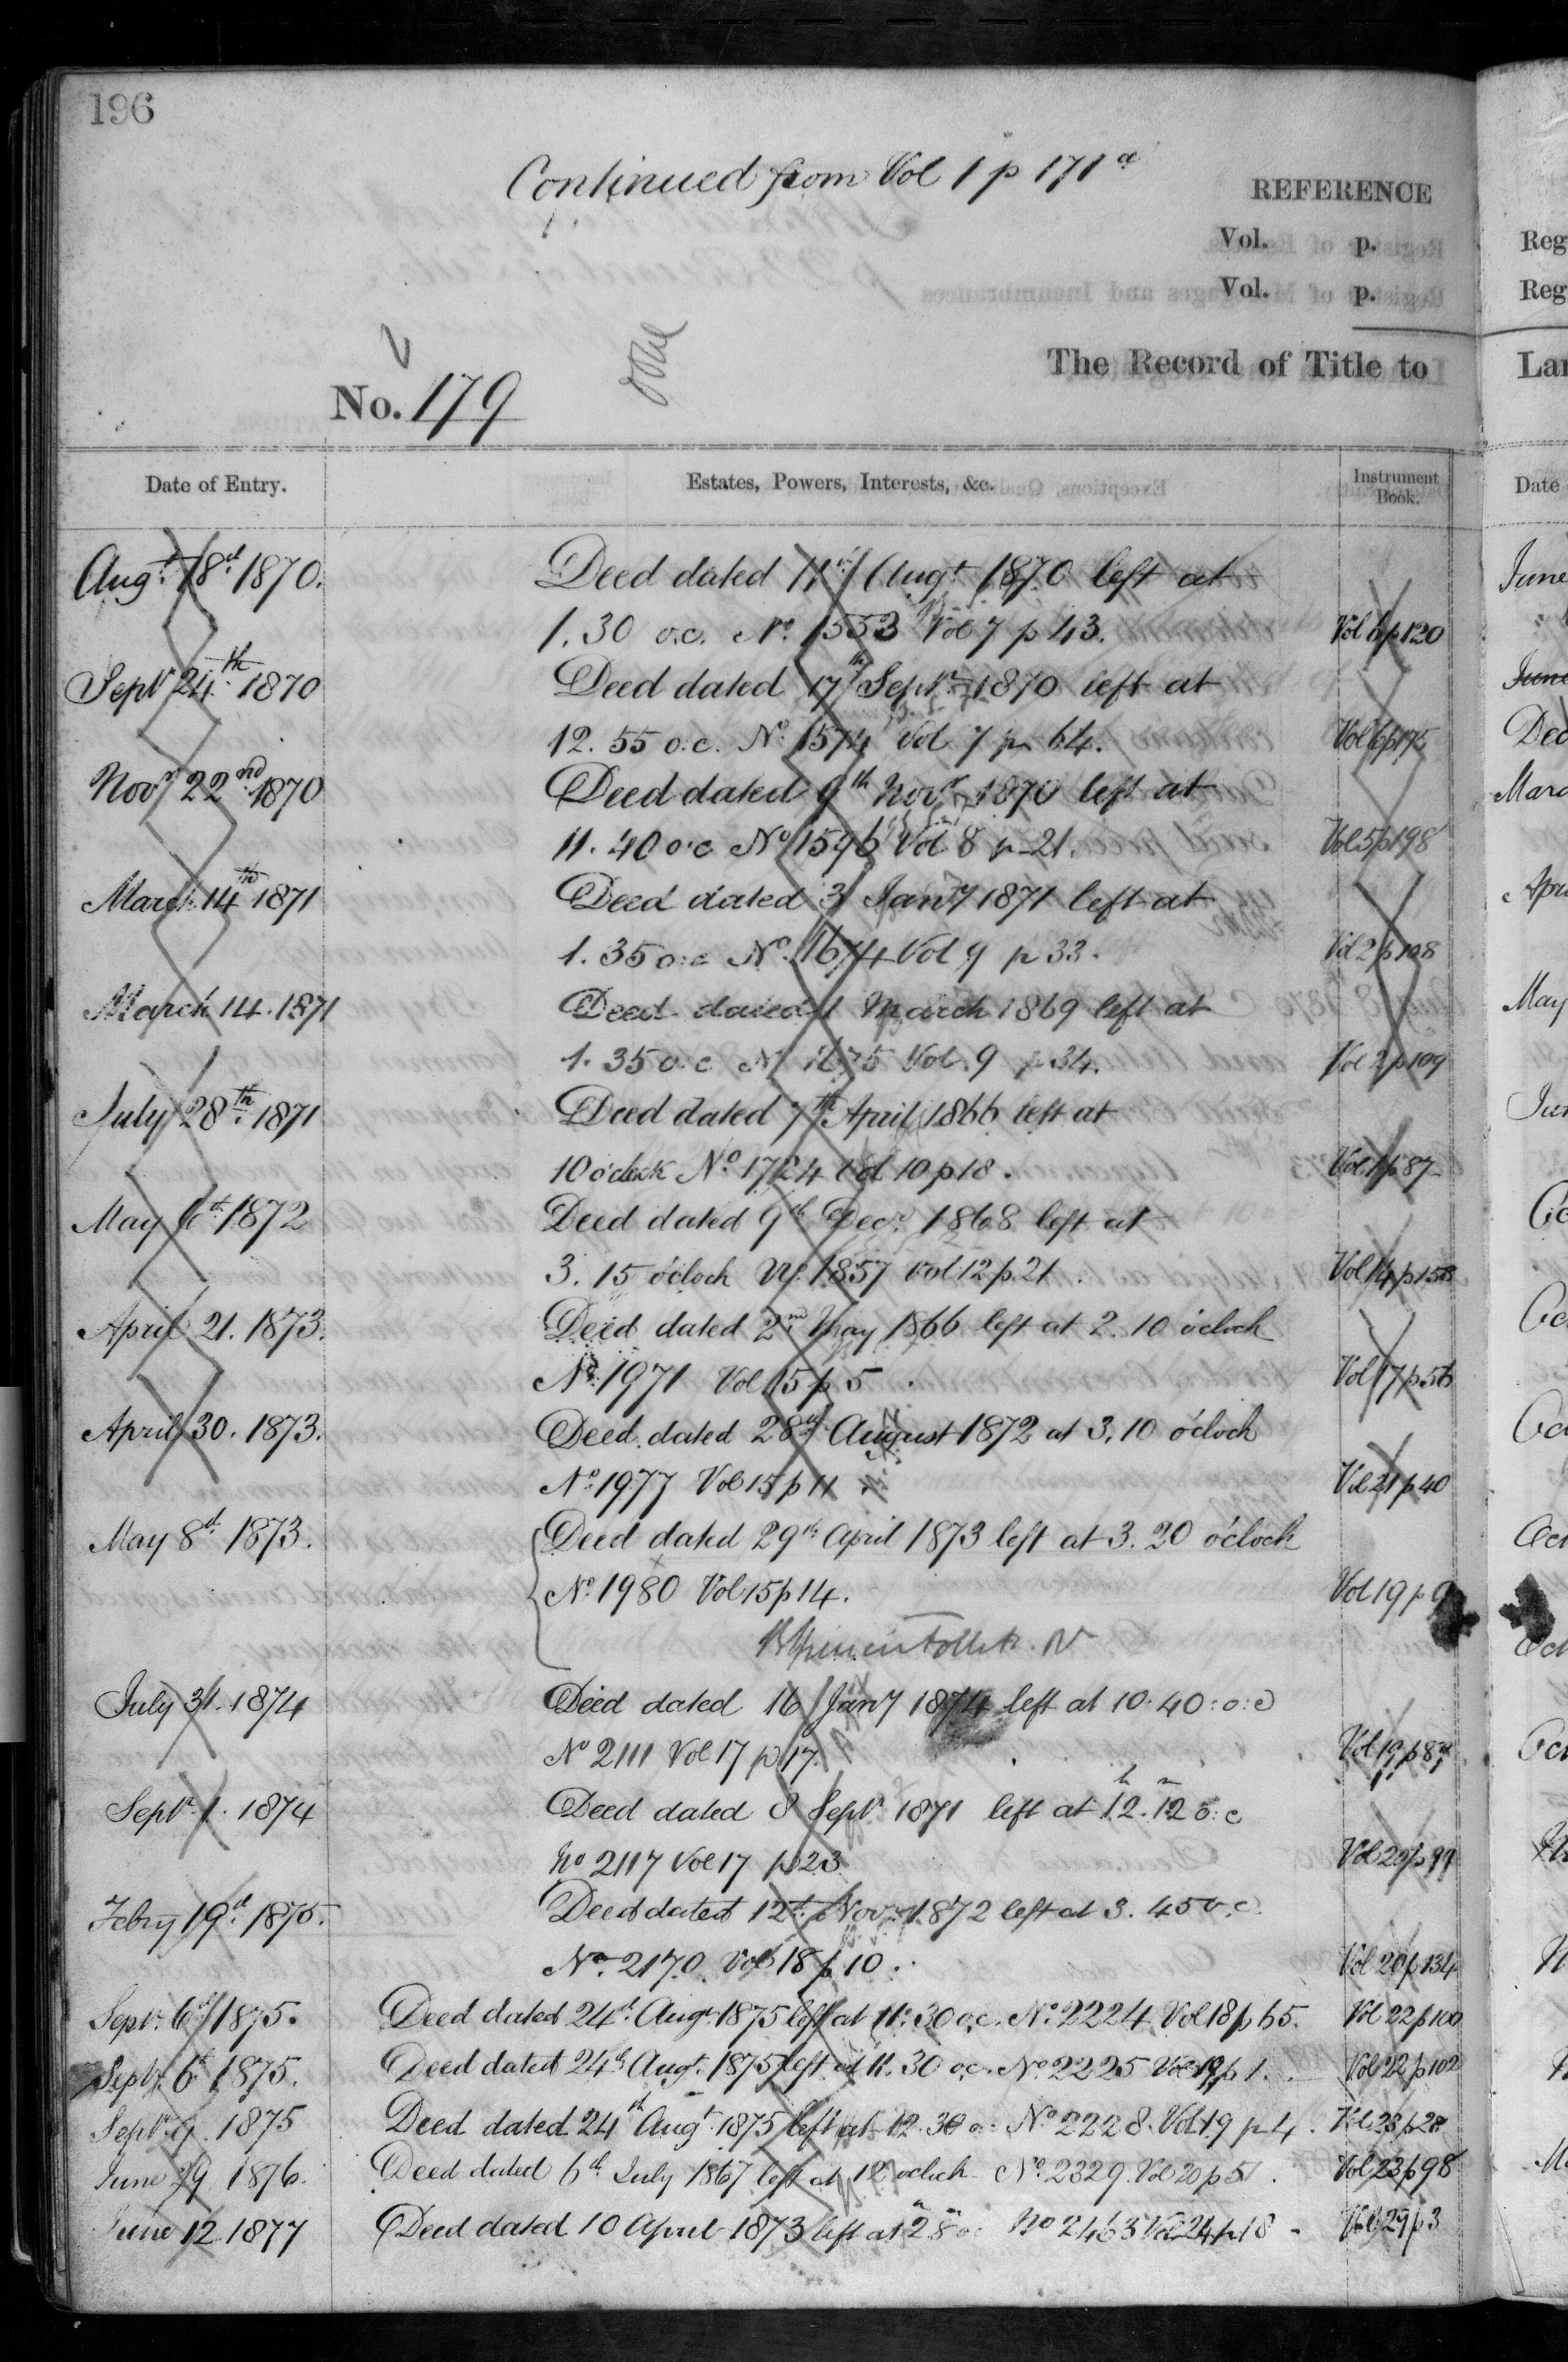 196
Continued from Vol 1 p 171a
REFERENCE
Vol. p.
Vol. p.
The Record of Title to
No. 179
Date of Entry.
Estates, Powers, Interests, &c.
Instrument Book.
Augt. 18th 1870. Deed dated 11th Augt 1870 left at
1.30 o.c. No. 1553 Vol 7 p 43. Vol 6 p 120
Septr 24th 1870 Deed dated 17th Septr 1870 left at
12.55 o.c. No 1574 Vol 7 p 64. Vol 6 p 175
Novr 22nd 1870 Deed dated 9th Novr 1870 left at
11.40 o.c No 1596 Vol 8 p 21. Vol 5 p 198
March 14th 1871 Deed dated 3 Jany 1871 left at
1.35 o.c No. 1674 Vol 9 p 33. Vol 2 p 108
March 14. 1871 Deed dated 1 March 1869 left at
1.35 o.c No 1675 Vol. 9 p 34. Vol 2 p 109
July 28th 1871 Deed dated 7th April 1866 left at
10 o'clock No. 1724 Vol 10 p 18. Vol 1 p 87
May 6th 1872 Deed dated 9th Decr. 1868 left at
3.15 o'clock No. 1857 Vol 12 p. 21. Vol 14 p 158
April 21. 1873. Deed dated 2nd May 1866 left at 2.10 o'clock
No. 1971 Vol 15 p 5. Vol 17 p 56
April 30. 1873. Deed dated 28th August 1872 at 3.10 o'clock
No. 1977 Vol 15 p 11 Vol 21 p 40
May 8th 1873. Deed dated 29th April 1873 left at 3.20 o'clock
No. 1980 Vol 15 p 14. Vol 19 p
July 31. 1874 Deed dated 16 Jany 1874 left at 10.40 : o : c
No 2111 Vol 17 p 17. Vol 19 p
Septr. 1. 1874 Deed dated 8 Septr 1871 left at 12h.12m o : c
No 2117 Vol 17 p 23 Vol 20 p 99
Febry 19th 1875. Deed dated 12th Novr 1872 left at 3.45 o.c.
No. 2170 Vol 18 p 10. Vol 20 p 134
Septr. 6th 1875. Deed dated 24th Augt 1875 left at 11.30 o.c. No. 2224 Vol 18 p 65. Vol 22 p 100
Septr. 6th 1875. Deed dated 24th Augt. 1875 left at 11.30 o.c. No 2225 Vol 19 p 1. Vol 22 p 102
Septr 9. 1875 Deed dated 24th Augt 1875 left at 12.30 o. No 2228 Vol 19 p 4. Vol 23 p 28
June 29 1876. Deed dated 6th July 1867 left at 12 oclock No. 2329 Vol 20 p 51. Vol 23 p 98
June 12 1877 Deed dated 10 April 1873 left at 2 8 o: No 2463 Vol 24 p 18 Vol 29 p 3